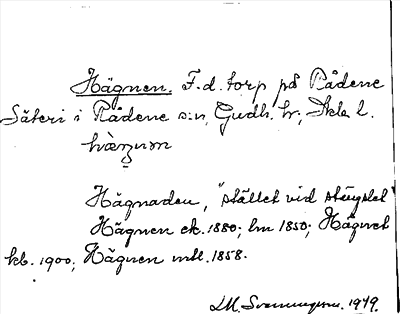 Hägnen. F.d. torp på Rådene
Säteri i Rådene s:n, Gudh. hr; Skla l.
hä̀ŋnəm
Hägnaden, "stället vid stängslet"
Hägnen ek. 1880; lm 1850; Hägnet
kb. 1900; Hägnen mtl. 1858.
1949.